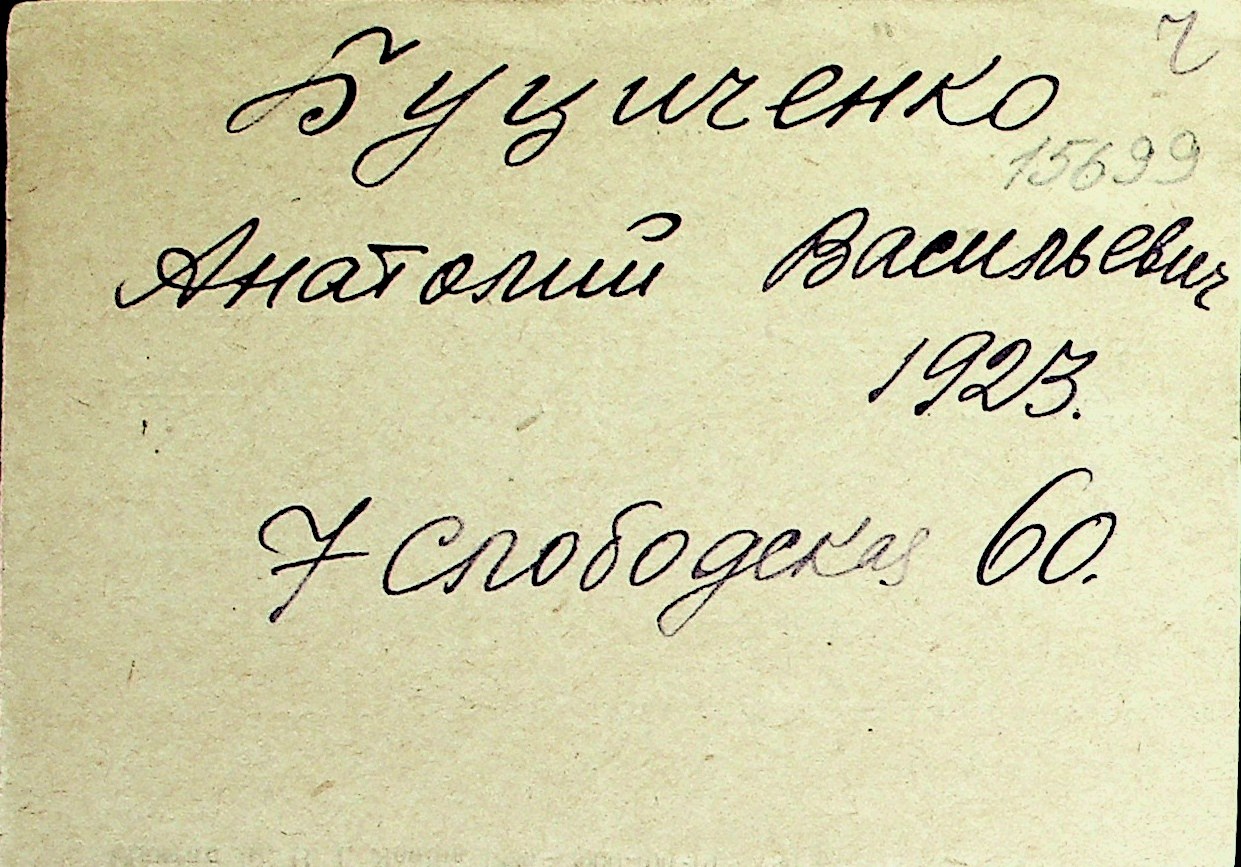 ч
Буциченко
15699
Анатолий Васильевич
1923.
7 Слободская 60.